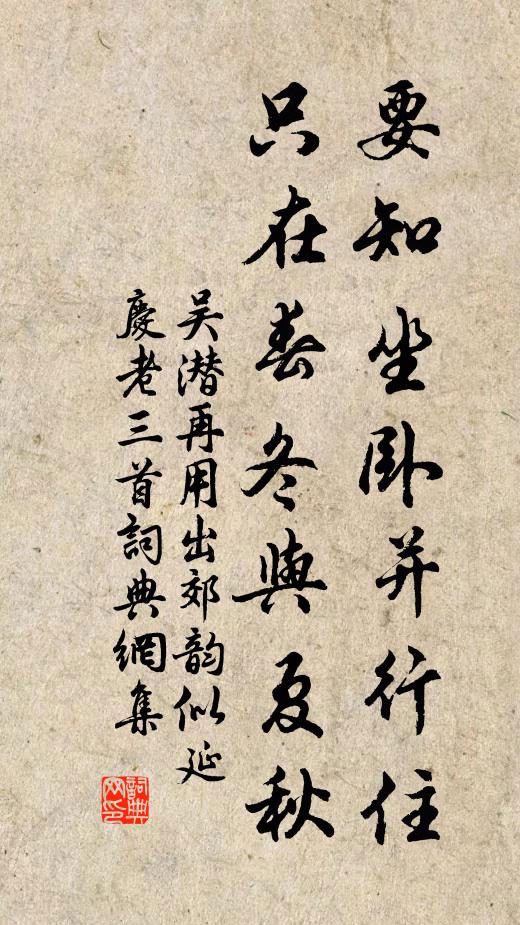 要知坐卧并行住
只在春冬與夏秋
吴潜再用出郊韵似延
慶老三首詞典網集
詞典网印